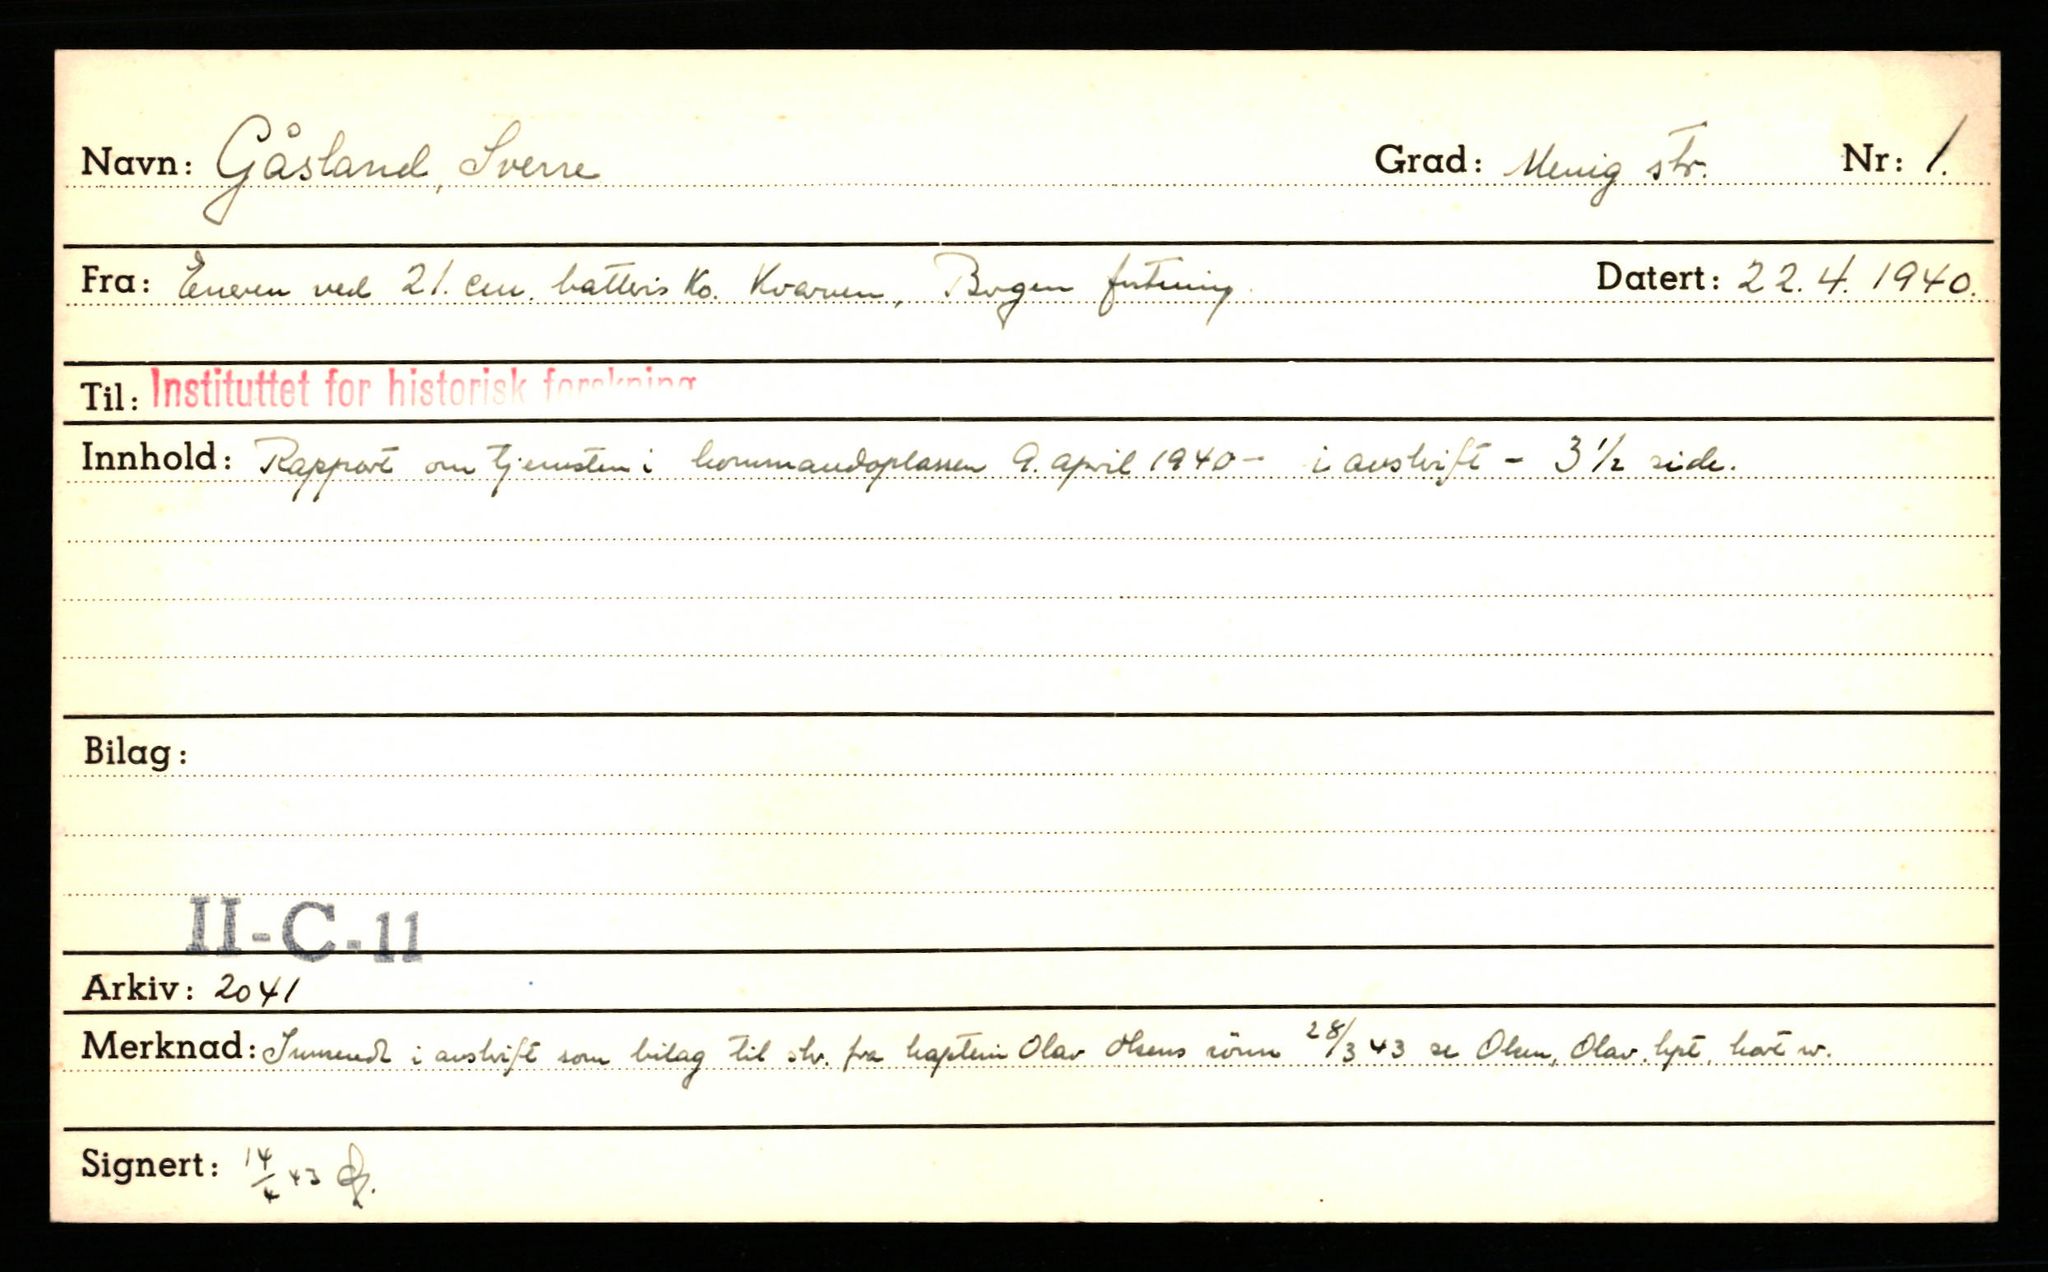 Navn: Gåsland, Sverre Grad: Menig str. Nr: 1.
Fra: Eneren ved 21. cm. batteris Ko. Kvarven, Bergen festning. Datert: 22.4.1940.
Til: Instituttet for historisk forskning
Innhold: Rapport om tjenesten i kommandoplassen 9. april 1940 - i avskrift - 3 1/2 side.
Bilag:
II-C-11
Arkiv: 2041
Merknad: Innsendt i avskrift som bilag til skr. fra kaptein Olav Olsens sönn 28/3 43 se Olsen, Olav, kpt. kort
Signert: 14/4 43